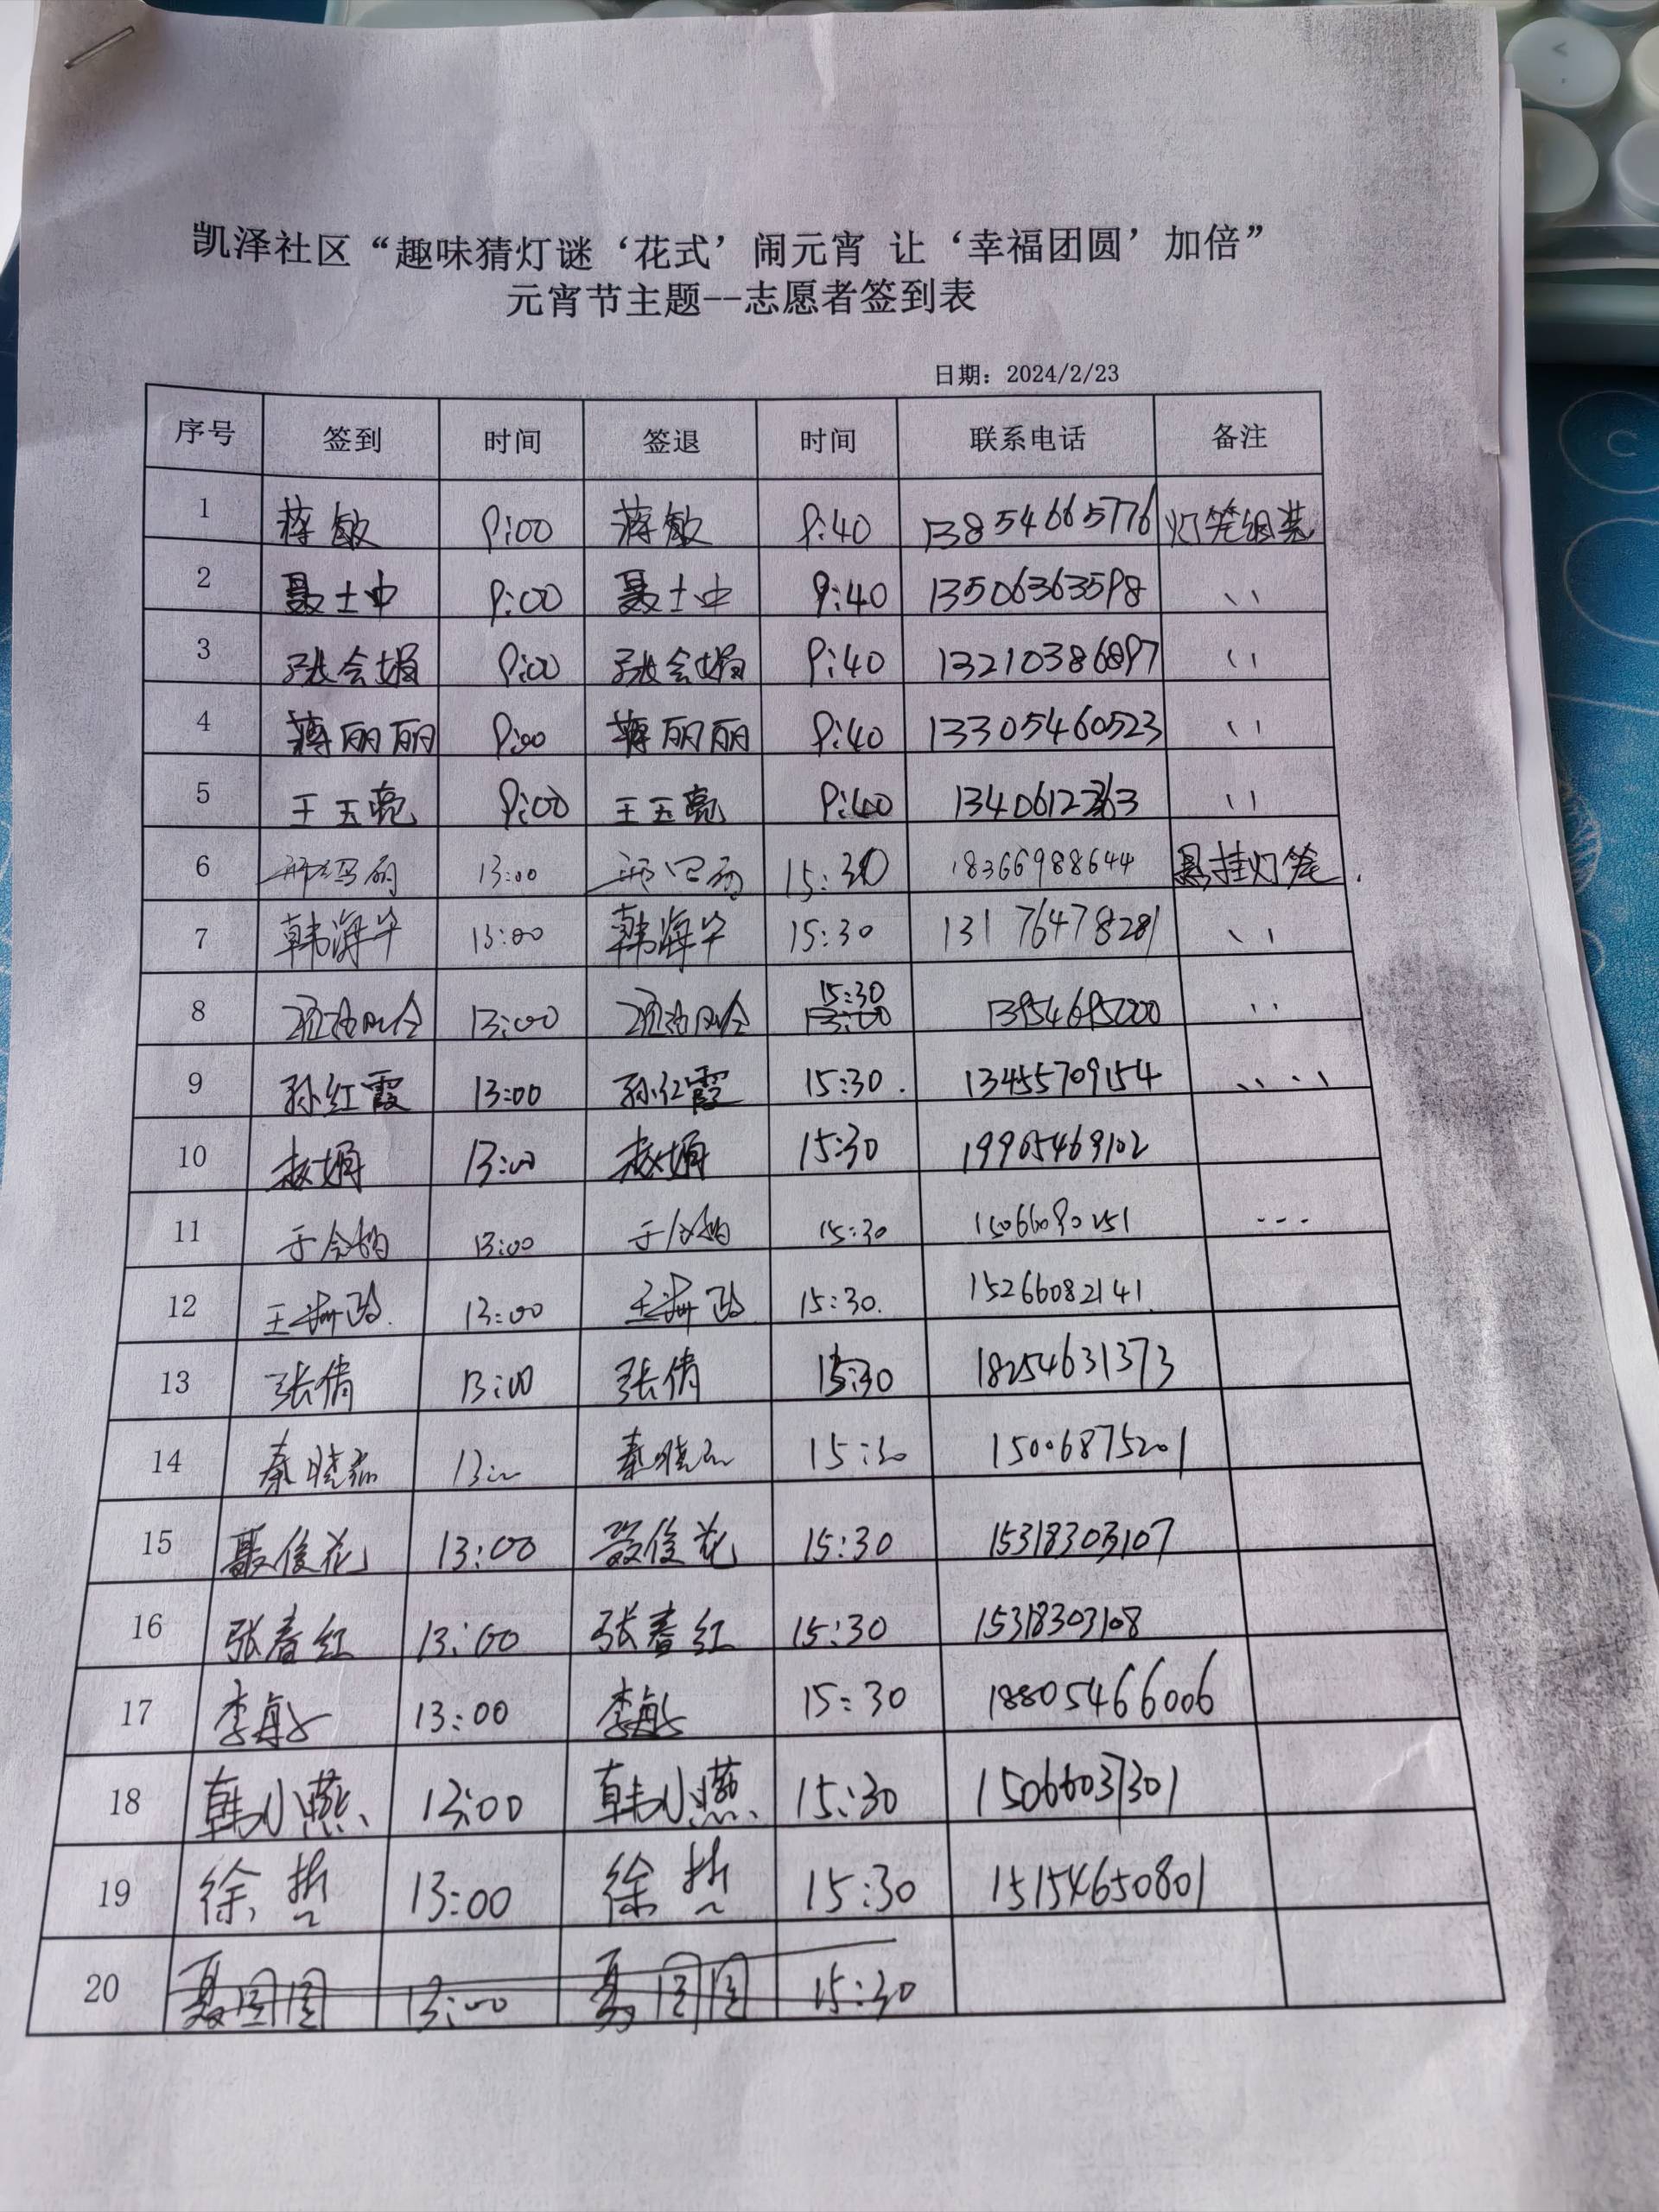 凯泽社区“趣味猜灯谜‘花式’闹元宵 让‘幸福团圆’加倍”
元宵节主题--志愿者签到表
日期：2024/2/23
序号 签到 时间 签退 时间 联系电话 备注
1 蒋敏 9:00 蒋敏 9:40 13854665776 灯笼组装
2 聂士中 9:00 聂士中 9:40 13506363598 、、
3 张会娟 9:00 张会娟 9:40 13210386897 、、
4 蒋丽丽 9:00 蒋丽丽 9:40 13305460523 、、
5 王玉亮 9:00 王玉亮 9:40 、、
6 13:00 15:30 18366988644 悬挂灯笼.
7 韩海华 13:00 韩海华 15:30 13176478281 、、
8 13:00 15:30 13954695000 、、
9 孙红霞 13:00 孙红霞 15:30. 13455709154 、、、、
10 赵娟 13:00 赵娟 15:30 19905469102
11 13:00 15:30 15066090251 ---
12 13:00 15:30. 15266082141
13 张倩 13:00 张倩 15:30 18254631373
14 秦晓 13:00 秦晓 15:30 15006875201
15 聂俊花 13:00 聂俊花 15:30 15318303107
16 张春红 13:00 张春红 15:30 15318303108
17 李敏 13:00 李敏 15:30 18805466006
18 韩小燕 13:00 韩小燕 15:30 15066037301
19 徐哲 13:00 徐哲 15:30 15154650801
20 13:00 15:30